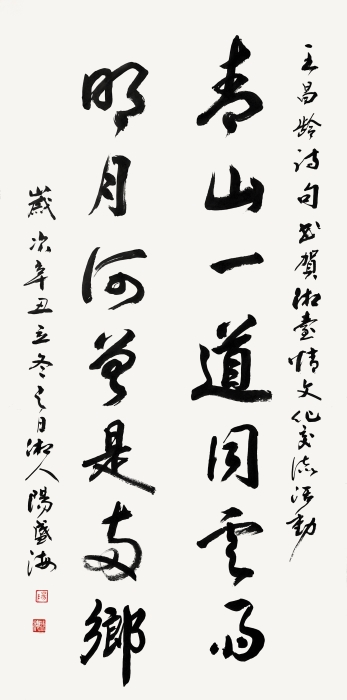 王昌龄诗句书贺湘臺情文化交流活動
青山一道同雲雨
明月何曾是兩鄉
歲次辛丑立冬之日湘人陽盛海